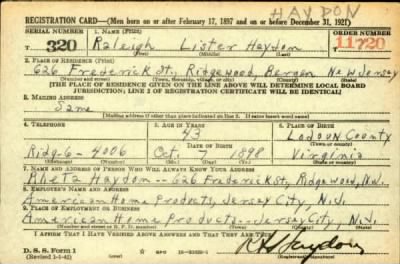 HAYDON
REGISTRATION CARD—(Men born on or after February 17, 1897 and on or before December 31, 1921)
SERIAL NUMBER 1. NAME (Print) ORDER NUMBER
T 320 Raleigh Lister Haydon 11720
(First) (Middle) (Last)
2. PLACE OF RESIDENCE (Print)
626 Frederick St. Ridgewood, Bergen New Jersey
(Number and street) (Town, township, village, or city) (County) (State)
[THE PLACE OF RESIDENCE GIVEN ON THE LINE ABOVE WILL DETERMINE LOCAL BOARD
JURISDICTION; LINE 2 OF REGISTRATION CERTIFICATE WILL BE IDENTICAL]
3. MAILING ADDRESS
Same
[Mailing address if other than place indicated on line 2. If same insert word same]
4. TELEPHONE 5. AGE IN YEARS 6. PLACE OF BIRTH
43 Lodoun County
DATE OF BIRTH (Town or county)
Ridg-6-4006 Oct. 7 1898 Virginia
(Exchange) (Number) (Mo.) (Day) (Yr.) (State or country)
7. NAME AND ADDRESS OF PERSON WHO WILL ALWAYS KNOW YOUR ADDRESS
Rheta Haydon--626 Frederick St, Ridgewood, N.J.
8. EMPLOYER'S NAME AND ADDRESS
American Home Products, Jersey City, N.J.
9. PLACE OF EMPLOYMENT OR BUSINESS
American Home Products--Jersey City, N.J.
(Number and street or R. F. D. number) (Town) (County) (State)
I AFFIRM THAT I HAVE VERIFIED ABOVE ANSWERS AND THAT THEY ARE TRUE.
D. S. S. Form 1
(Revised 1-1-42) GPO Haydon